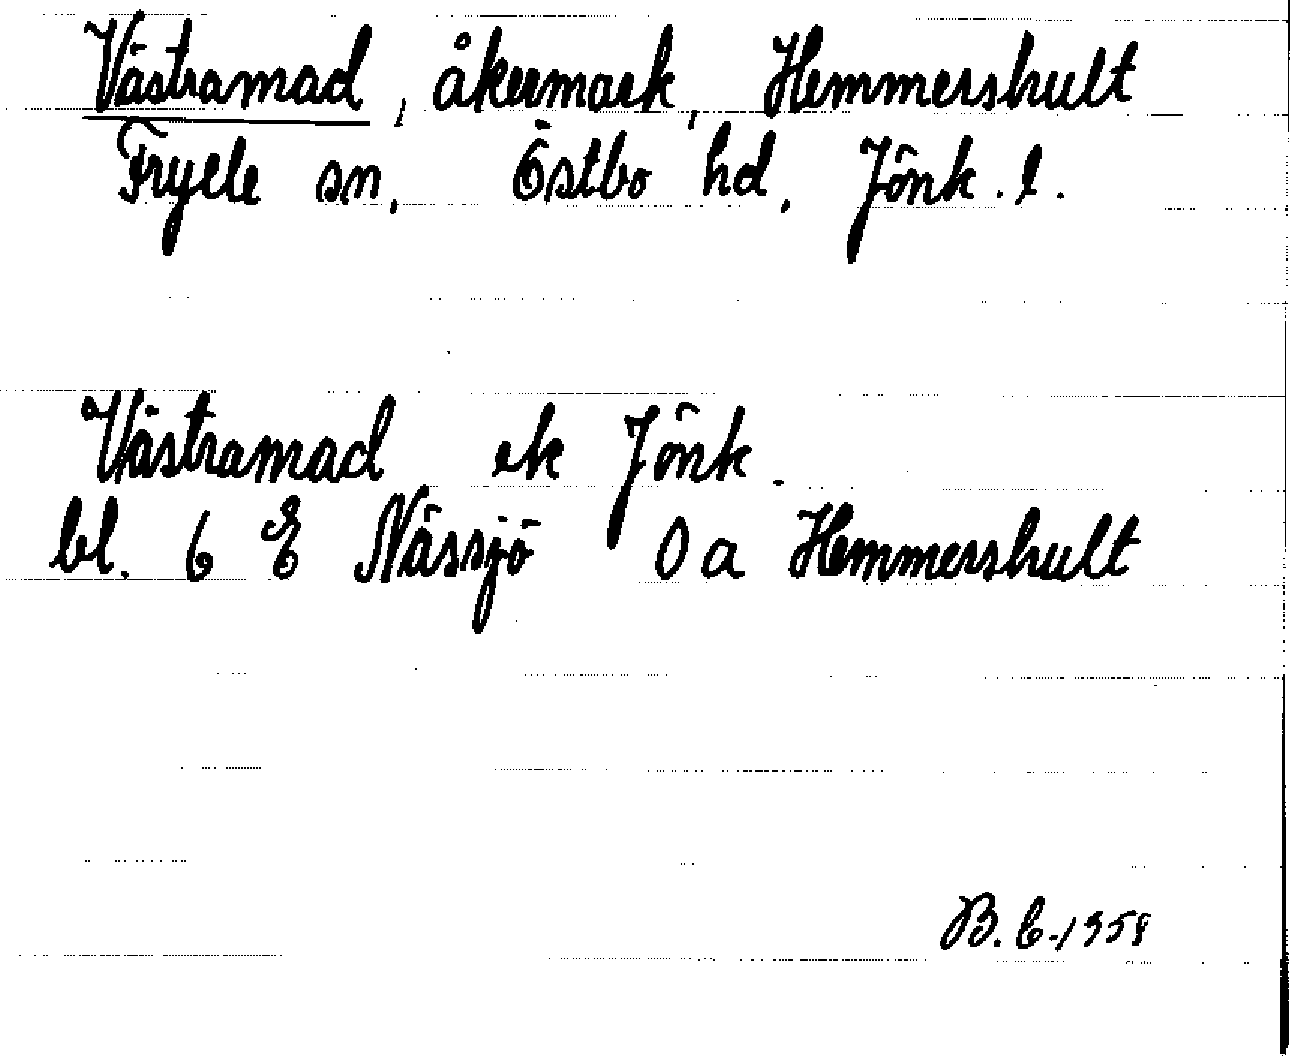 Västramad, åkermark, Hemmershult
Fryele sn. Östbo hd. Jönk. l.
Västramad ek Jönk.
bl. 6 E Nässjö 0 a Hemmershult
B. E. 1958